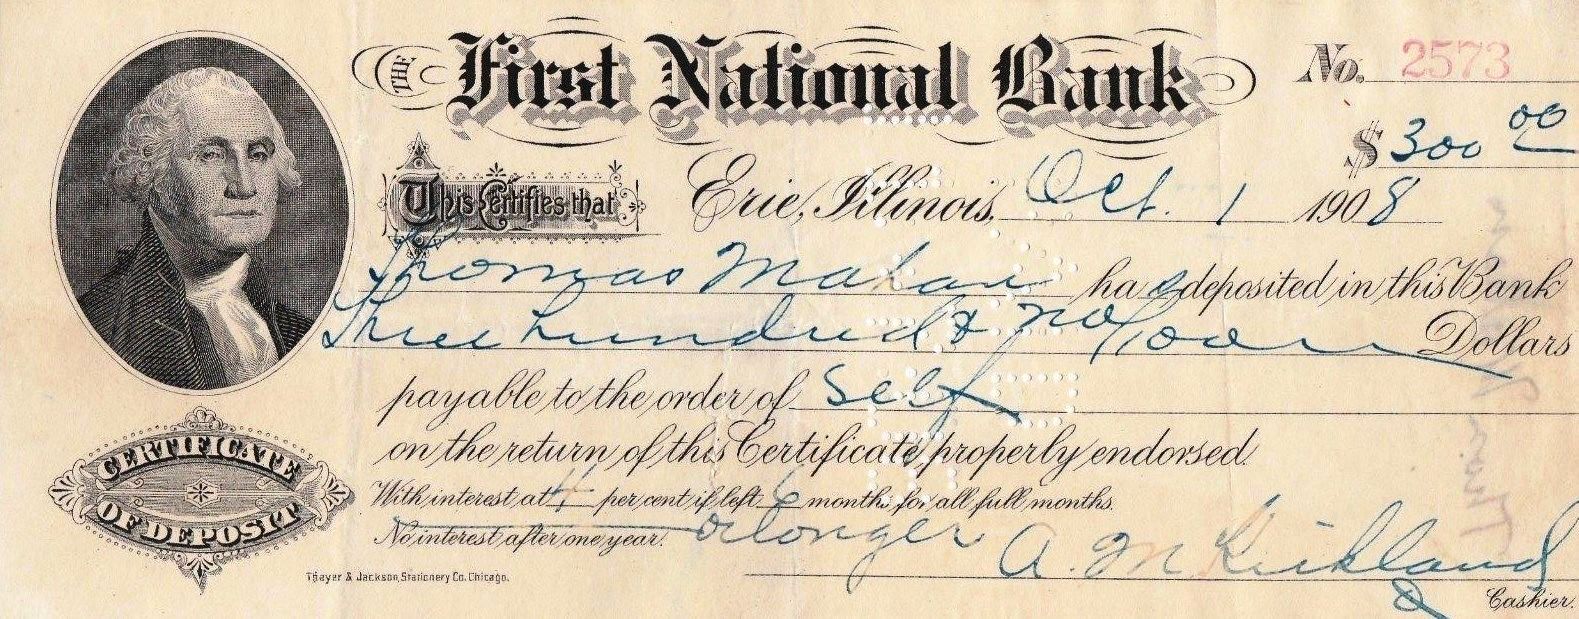 THE First National Bank No. 2573
$ 300 00
This Certifies that Erie, Illinois, Oct. 1 1908
Thomas Mahan has deposited in this Bank
Three hundred & no/100 Dollars
payable to the order of Self
on the return of this Certificate properly endorsed.
With interest at 4 per cent if left 6 months for all full months.
No interest after one year. or longer
A. M Kirkland
Cashier.
CERTIFICATE
OF DEPOSIT
Thayer & Jackson Stationery Co. Chicago.